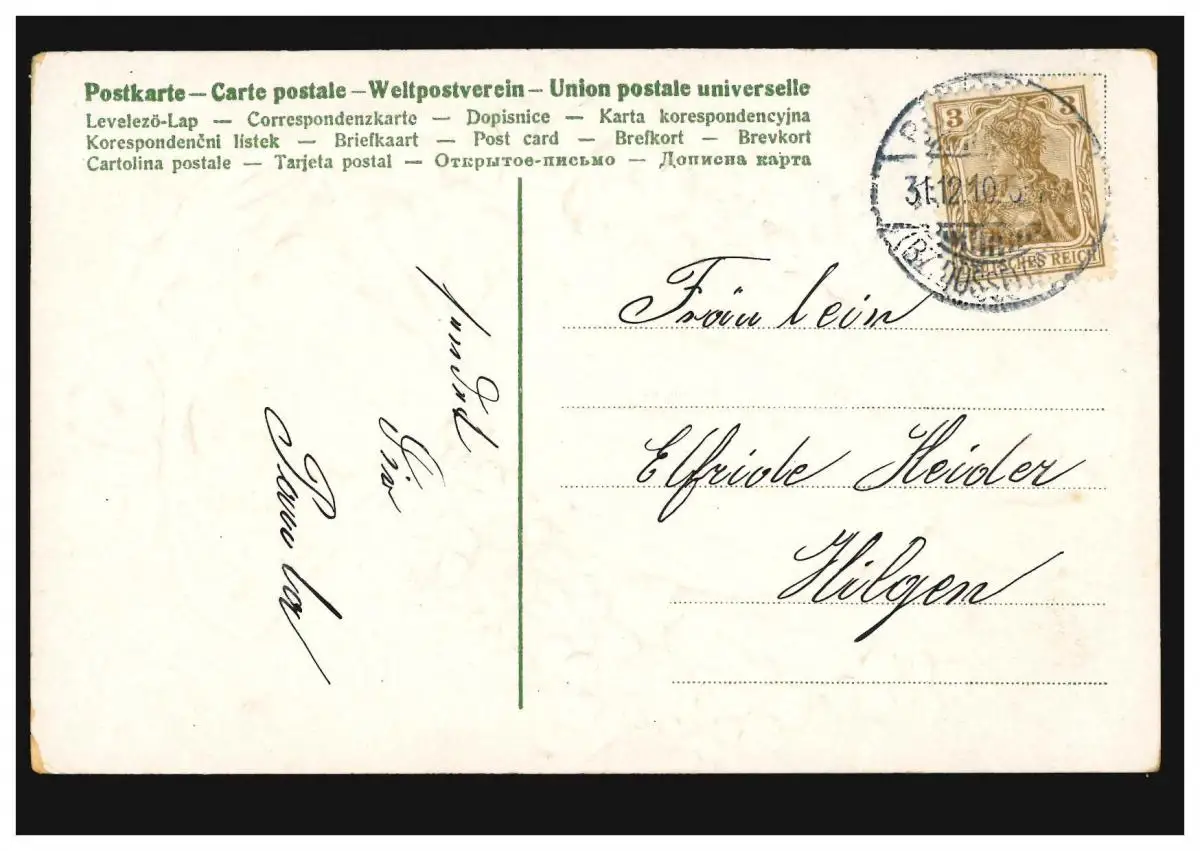 Postkarte — Carte postale — Weltpostverein — Union postale universelle
Levelezö-Lap — Correspondenzkarte — Dopisnice — Karta korespondencyjna
Korespondenčni listek — Briefkaart — Post card — Brefkort — Brevkort
Cartolina postale — Tarjeta postal — Открытое-письмо — Дописна карта
3 3
31.12.10
(BZ. DÜSSELD
DEUTSCHES REICH
Fräulein
Elfride Heider
Hilgen